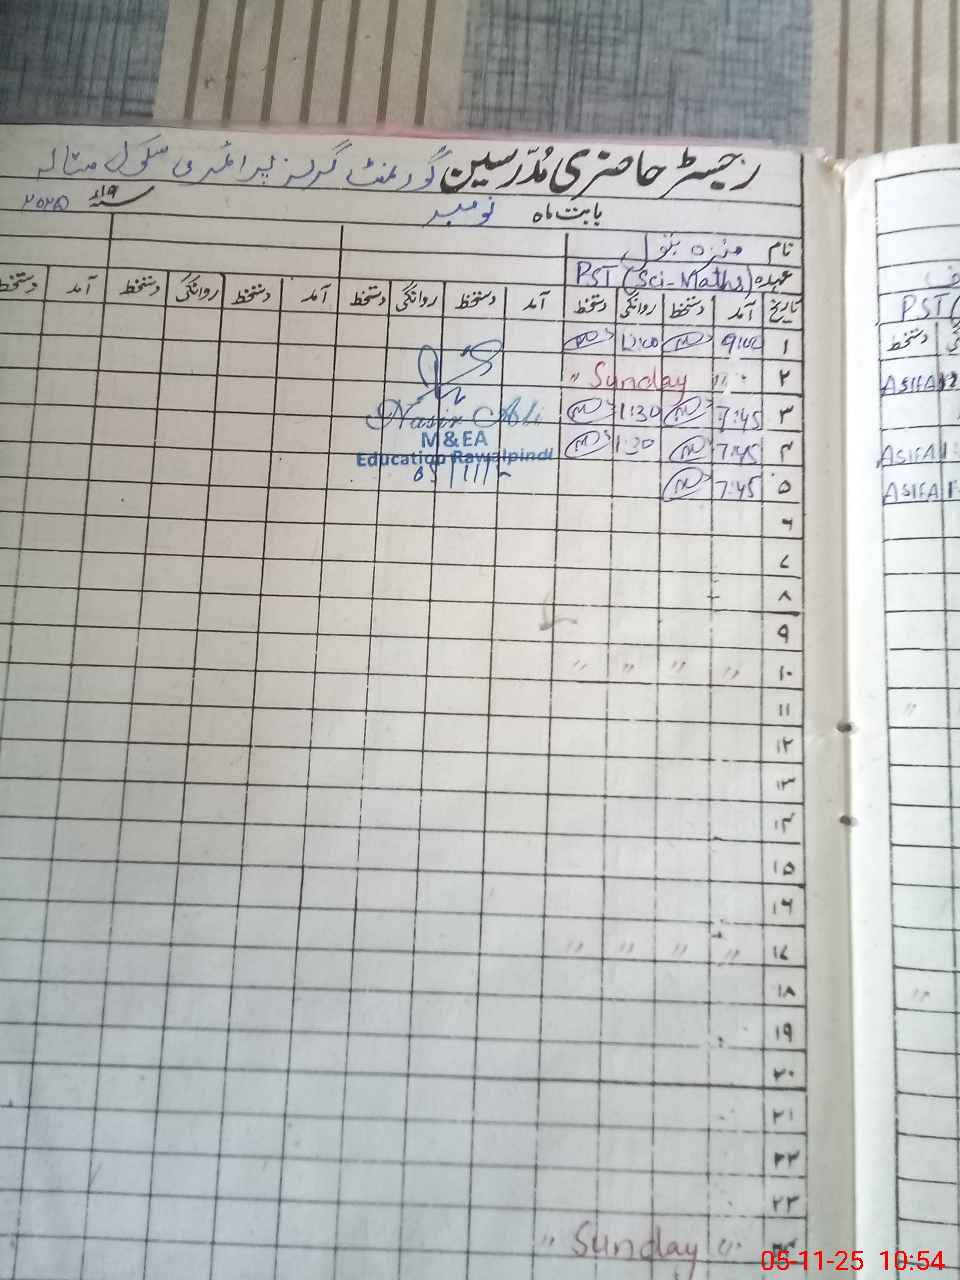 رجسٹر حاضری مُدّرسین گورنمنٹ گرلز پرائمری سکول
بابت ماہ نومبر سنہ ۱۹ء ۲۰۲۵
نام
عہدہ PST (Sci-Maths)
تاریخ آمد دستخط روانگی دستخط آمد دستخط روانگی دستخط آمد دستخط روانگی دستخط آمد دستخط
۱ 9:00 12:00
۲ " Sunday "
۳ 7:45 1:30
۴ 7:45 1:30
۵ 7:45
۶
۷
۸
۹
۱۰ " " " "
۱۱
۱۲
۱۳
۱۴
۱۵
۱۶
۱۷ " " " "
۱۸
۱۹
۲۰
۲۱
۲۲
۲۳
" Sunday "
Nasir Ali
M&EA
Education Rawalpindi
PST (
دستخط
ASIFA
ASIFA
ASIFA
"
"
05-11-25 10:54